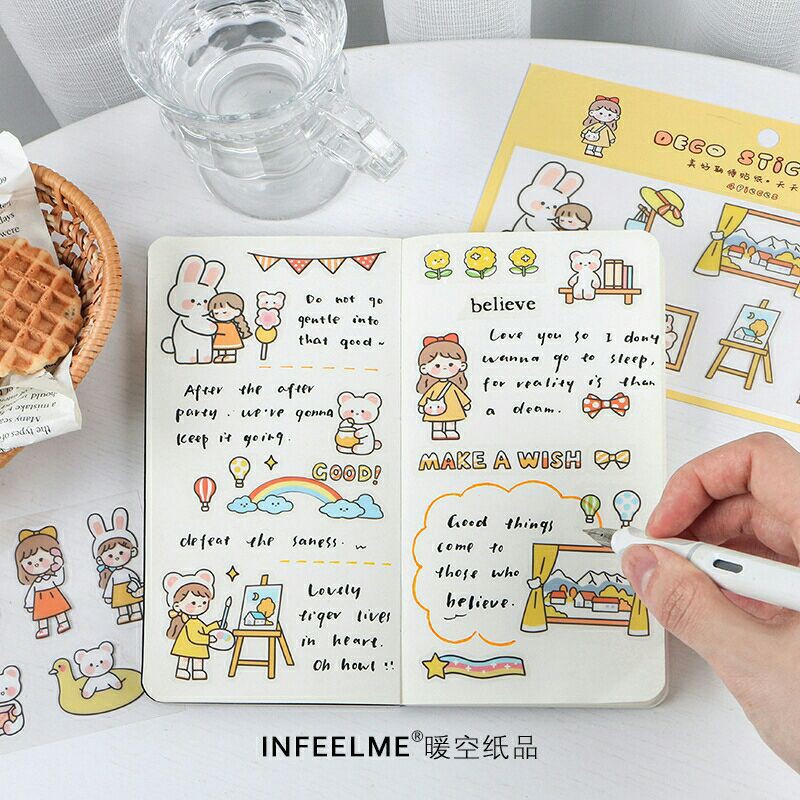 DECO STIC
真好勒傳贴纸·天天
4Pieces
Do not go
gentle into
that good~
After the after
party. we're gonna
keep it going.
GOOD!
defeat the saness. ~
Lovely
tiger lives
in heart.
Oh howl !!
believe
Love you so I dont
wanna go to sleep,
for reality is than
a dream.
MAKE A WISH
Good things
come to
those who
believe.
INFEELME®暖空纸品